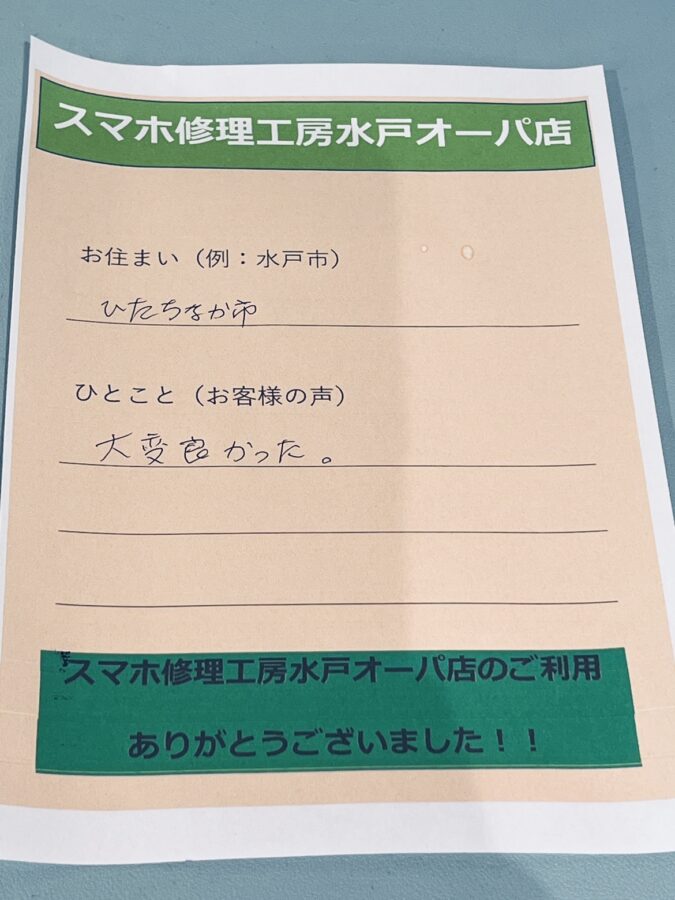 スマホ修理工房水戸オーパ店
お住まい（例：水戸市）
ひたちなか市
ひとこと（お客様の声）
大変良かった。
スマホ修理工房水戸オーパ店のご利用
ありがとうございました！！